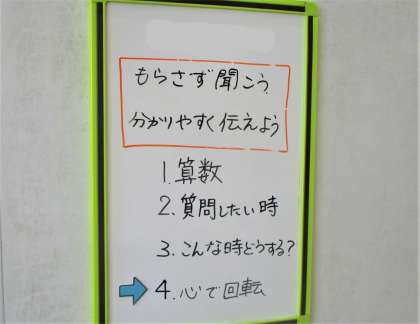 もらさず聞こう
分かりやすく伝えよう
1.算数
2.質問したい時
3.こんな時どうする?
4.心で回転